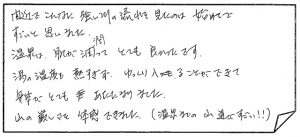 間近でこんなに強い川の流れを見たのは始めてで
すごいと思いました。
温泉は、肌が潤って とても良かったです。
湯の温度も熱すぎず、ゆっくり入ることができて
身体がとても あたたまりました。
山の厳しさを体感できました。(温泉までの山道がすごい!!)